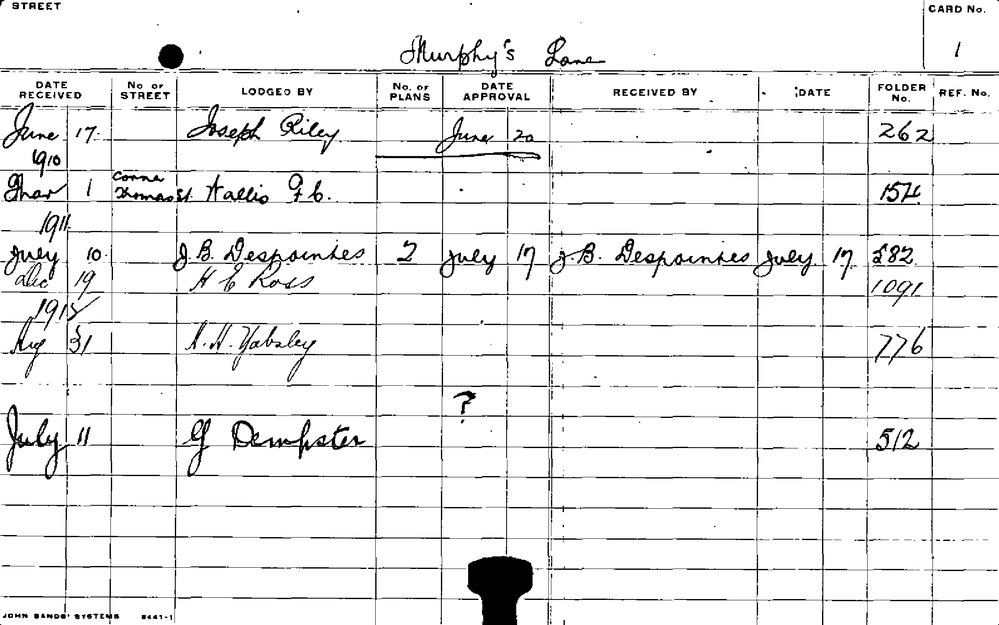 STREET
CARD No.
Murphy's Lane
1
DATE RECEIVED No OF STREET LODGED BY No. OF PLANS DATE APPROVAL RECEIVED BY DATE FOLDER No. REF. No.
June 17 Joseph Riley June 20 262
1910
1 Corner Thomas St. Wallis F C. 154
1911
July 10 J.B. Despointes 2 July 17 J.B. Despointes July 17 582
Dec 19 H E Ross 1091
1915
Aug 31 A.H. Yabsley 776
?
July 11 G Dempster 512
JOHN SANDS' SYSTEMS 8441-1